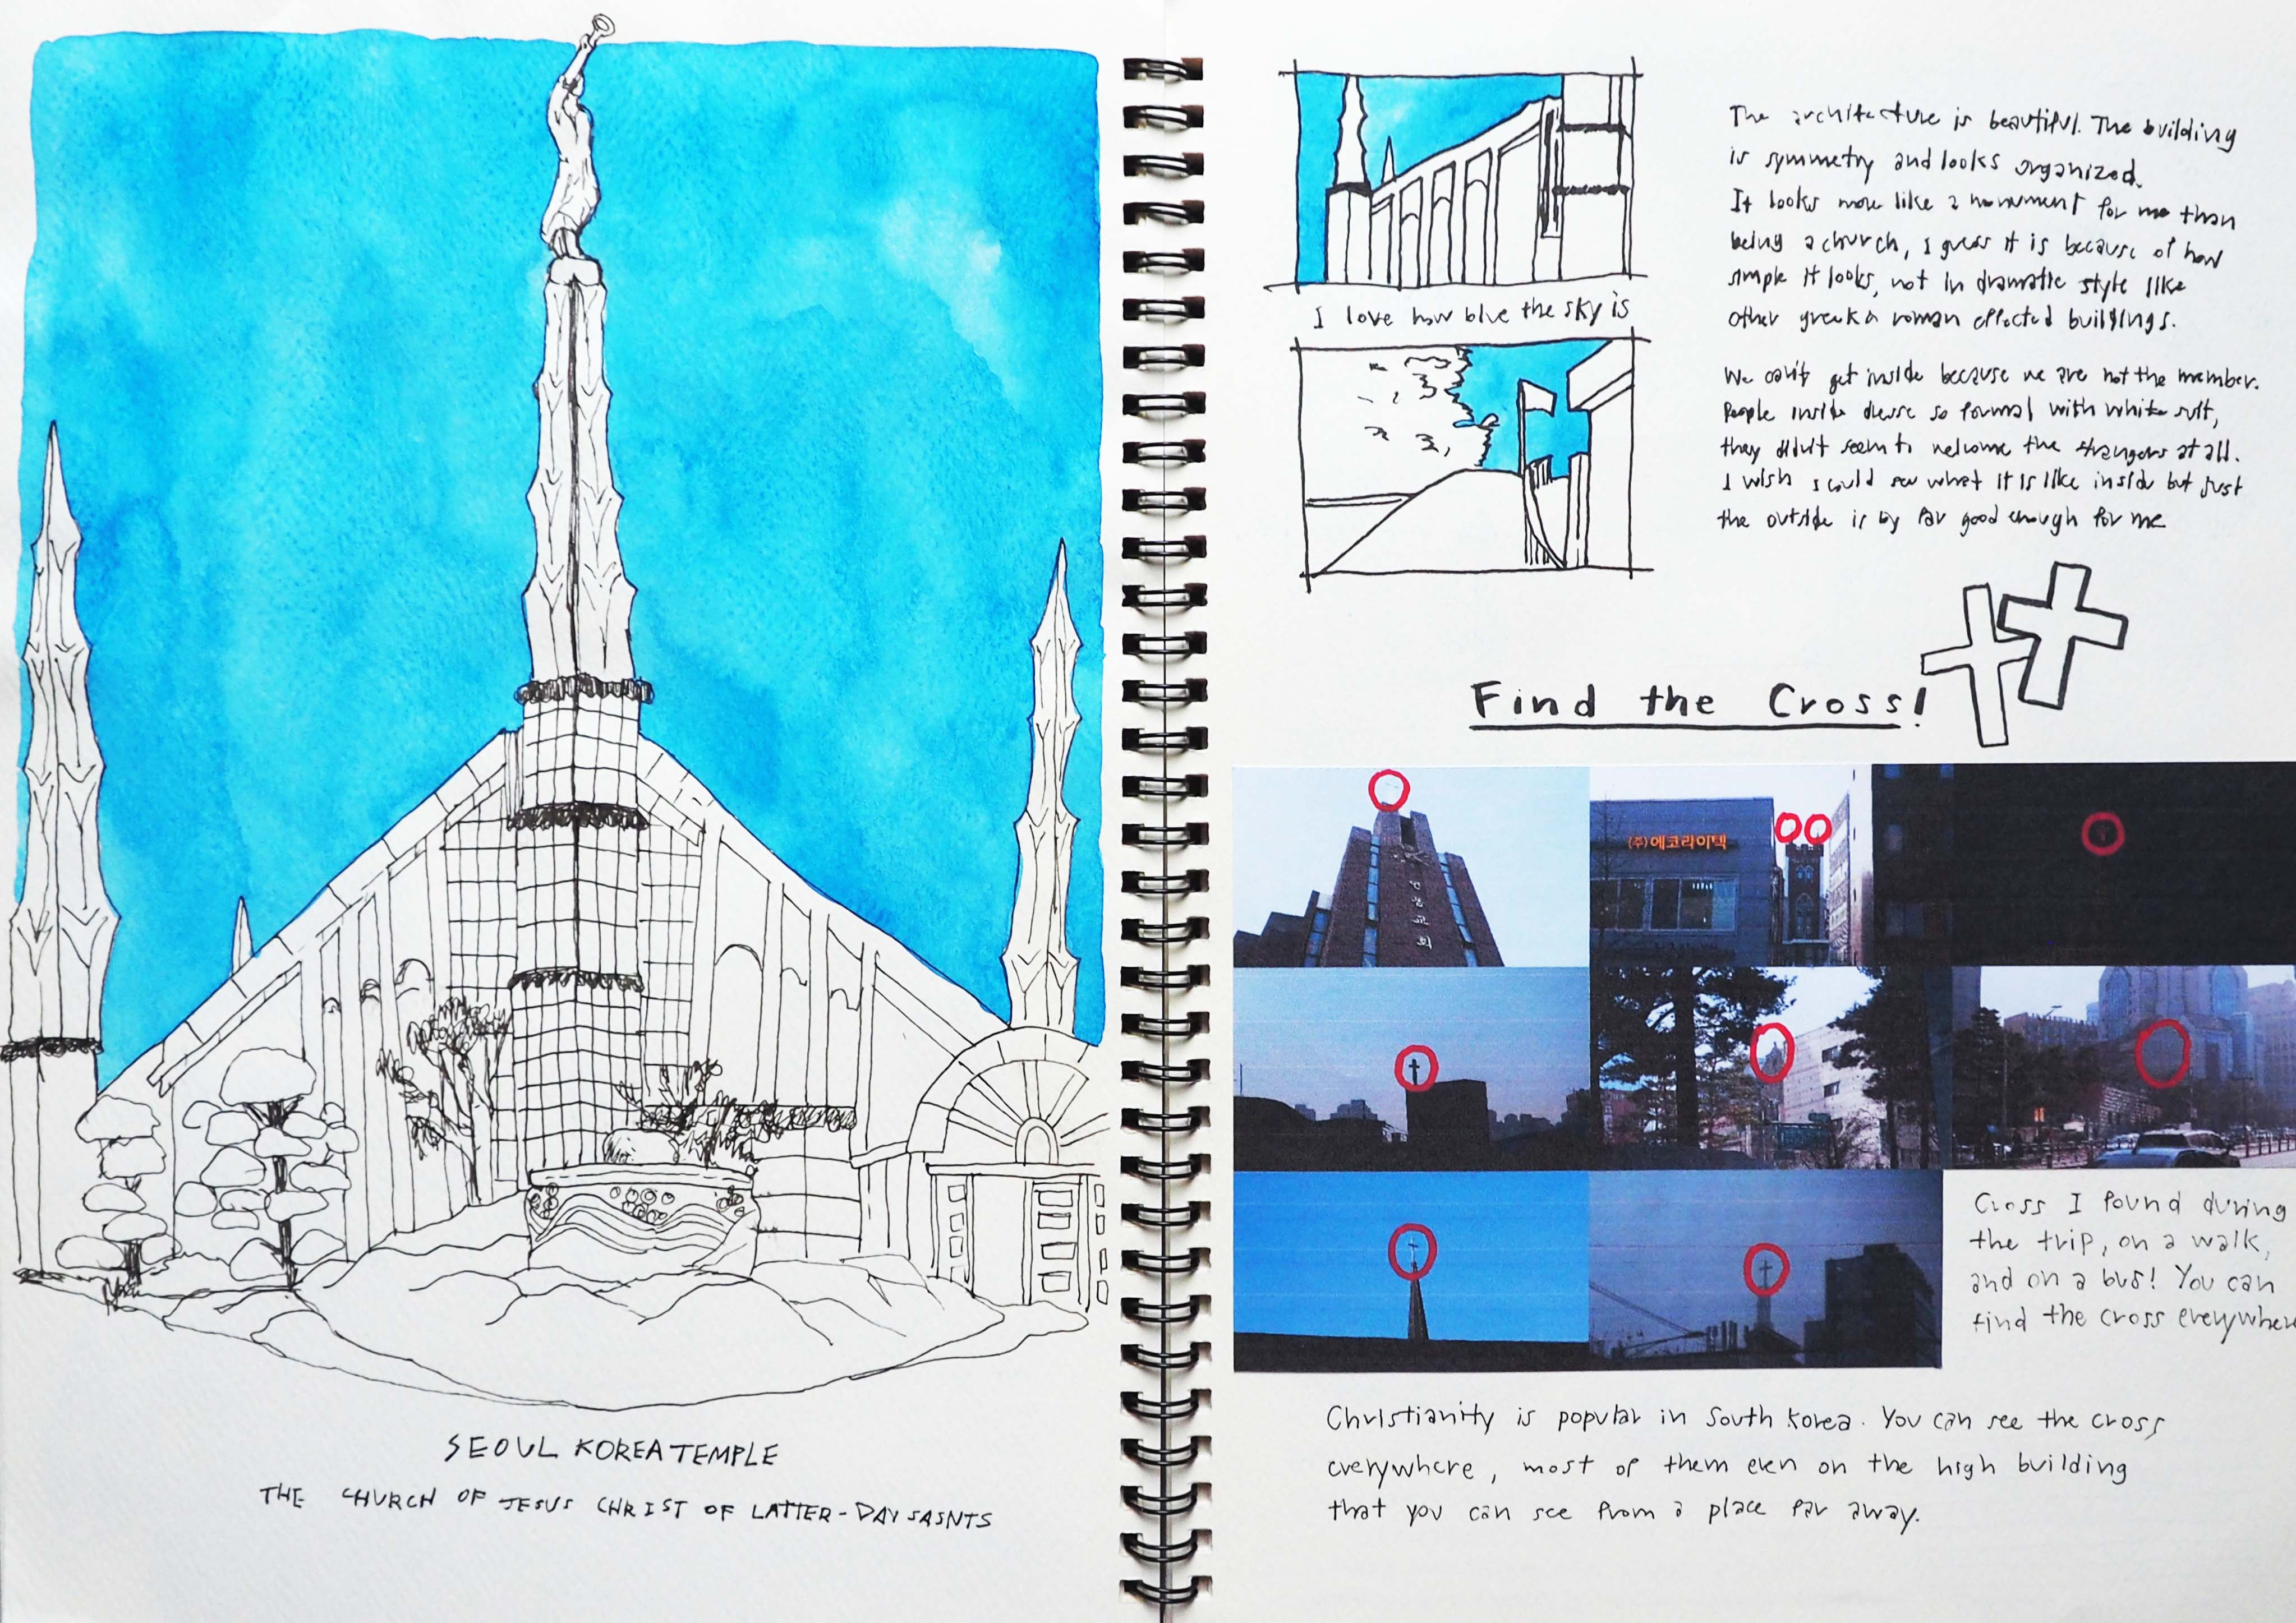 SEOUL KOREA TEMPLE
THE CHURCH OF JESUS CHRIST OF LATTER-DAY SASNTS
I love how blue the sky is
The architecture is beautiful. The building
is symmetry and looks organized.
It looks more like a monument for me than
being a church, I guess it is because of how
simple it looks, not in dramatic style like
other greek & roman effected buildings.
We can't get inside because we are not the member.
People inside dresse so formal with white suit,
they didn't seem to welcome the strangers at all.
I wish I could see what it is like inside but just
the outside is by far good enough for me
Find the Cross!
(주)에코라이텍
교회
Cross I found during
the trip, on a walk,
and on a bus! You can
find the cross everywher
Christianity is popular in South Korea. You can see the cross
everywhere, most of them even on the high building
that you can see from a place far away.